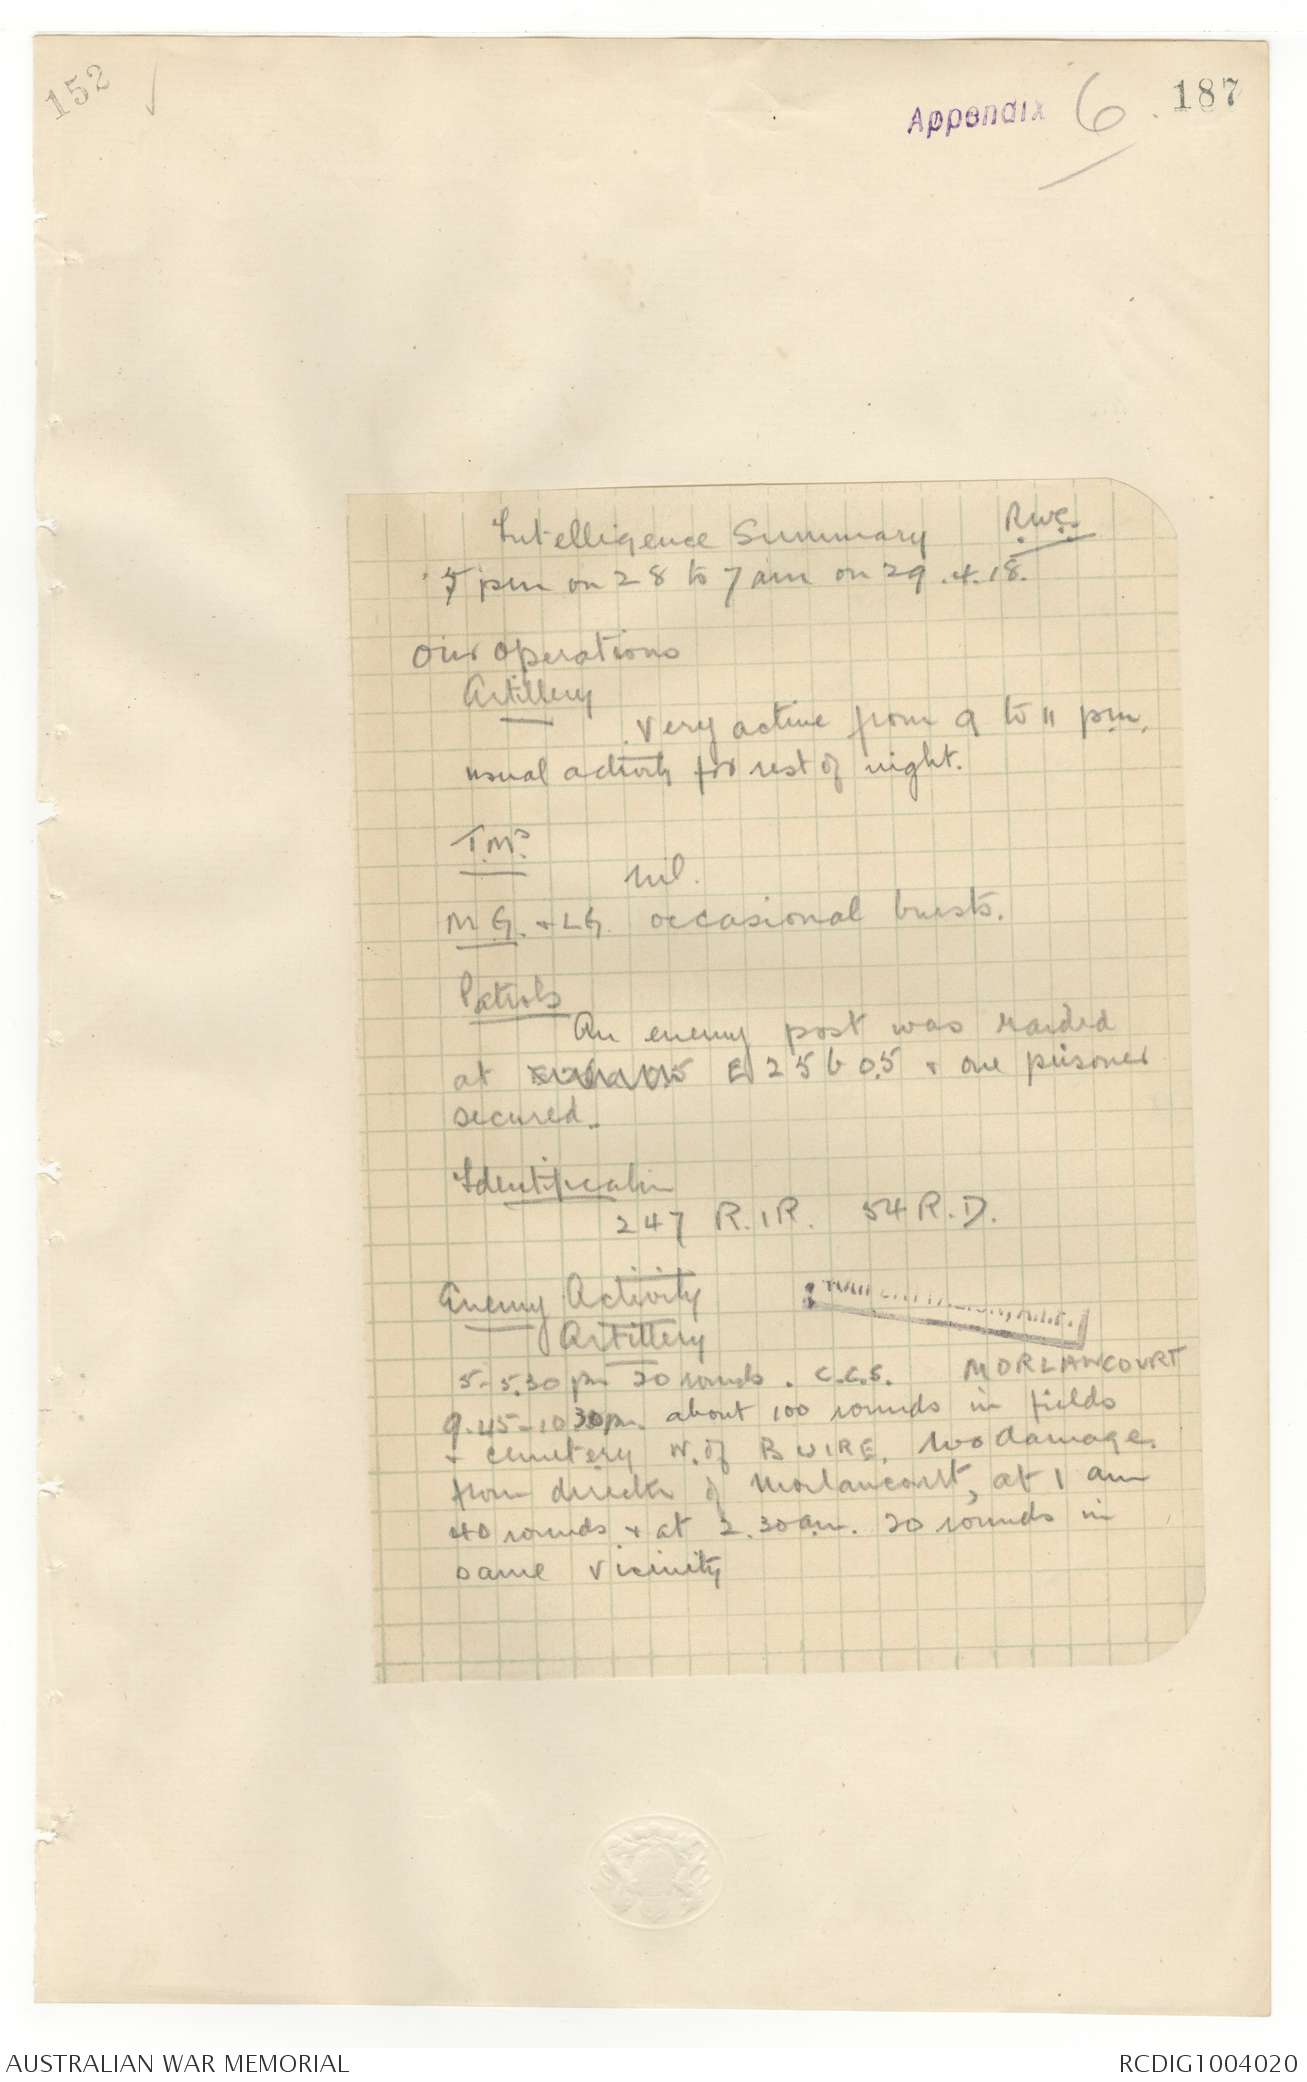 152
Appendix 6. 187
Intelligence Summary
5 pm on 28 to 7 am on 29.4.18.
Our Operations
Artillery
Very active from 9 to 11 pm,
usual activity for rest of night.
T.Ms.
Nil.
M.G. + LG. occasional bursts.
Patrols
An enemy post was raided
at E 25 b 0.5 + one prisoner
secured.
Identification
247 R.I.R. 54 R.D.
Enemy Activity
Artillery
5-5.30 pm 20 rounds. C.C.S. MORLANCOURT
9.45-10.30pm. about 100 rounds in fields
+ cemetery N. of BUIRE. No damage.
from direction of Morlancourt, at 1 am
40 rounds + at 2.30am. 20 rounds in
same vicinity
AUSTRALIAN WAR MEMORIAL
RCDIG1004020